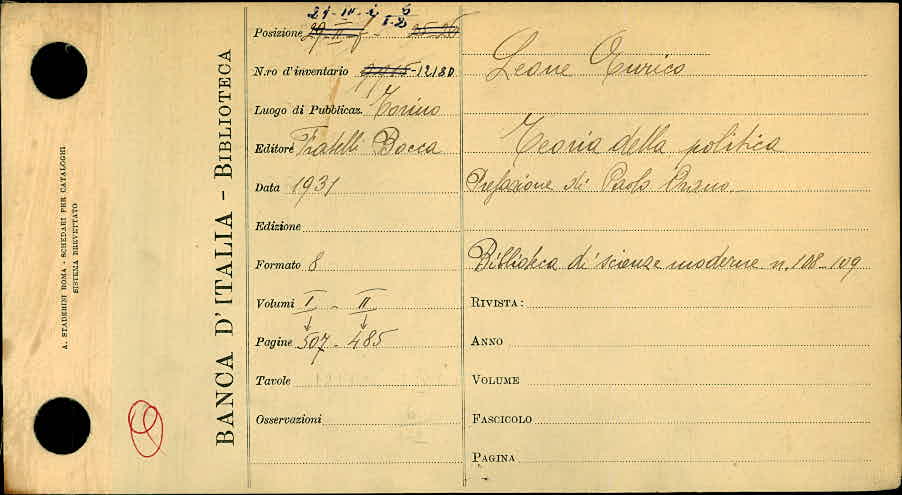 A. STADERINI ROMA - SCHEDARI PER CATALOGHI
SISTEMA BREVETTATO
BANCA D'ITALIA - BIBLIOTECA
Posizione
N.ro d'inventario 12180
Luogo di Pubblicaz. Torino
Editore Fratelli Bocca
Data 1931
Edizione
Formato 8
Volumi I - II
Pagine 507 - 485
Tavole
Osservazioni
Leone Enrico
Teoria della politica
Prefazione di Paolo Orano
Biblioteca di scienze moderne n. 108-109
RIVISTA:
ANNO
VOLUME
FASCICOLO
PAGINA